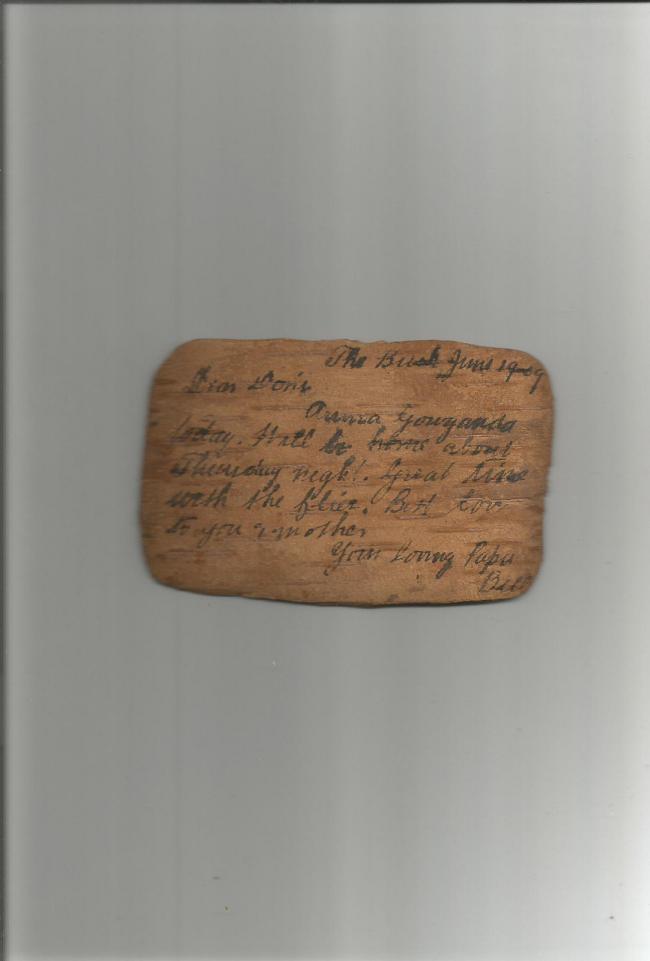 The Bush June 19-09
Dear Doris
Gowganda
today. Will be home about
Thursday night. Great time
with the flies. Best love
to you & mother
Your loving Papa